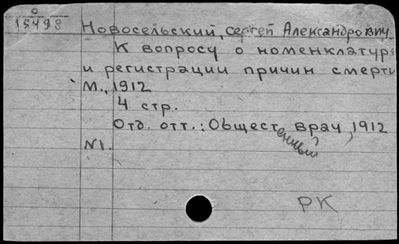 0
15498
Новосельский, Сергей Александрович.
К вопросу о номенклатуре
и регистрации причин смерти
М., 1912
4 стр.
Отд. отт.: Обществ. врач, 1912
енный
N1.
РК